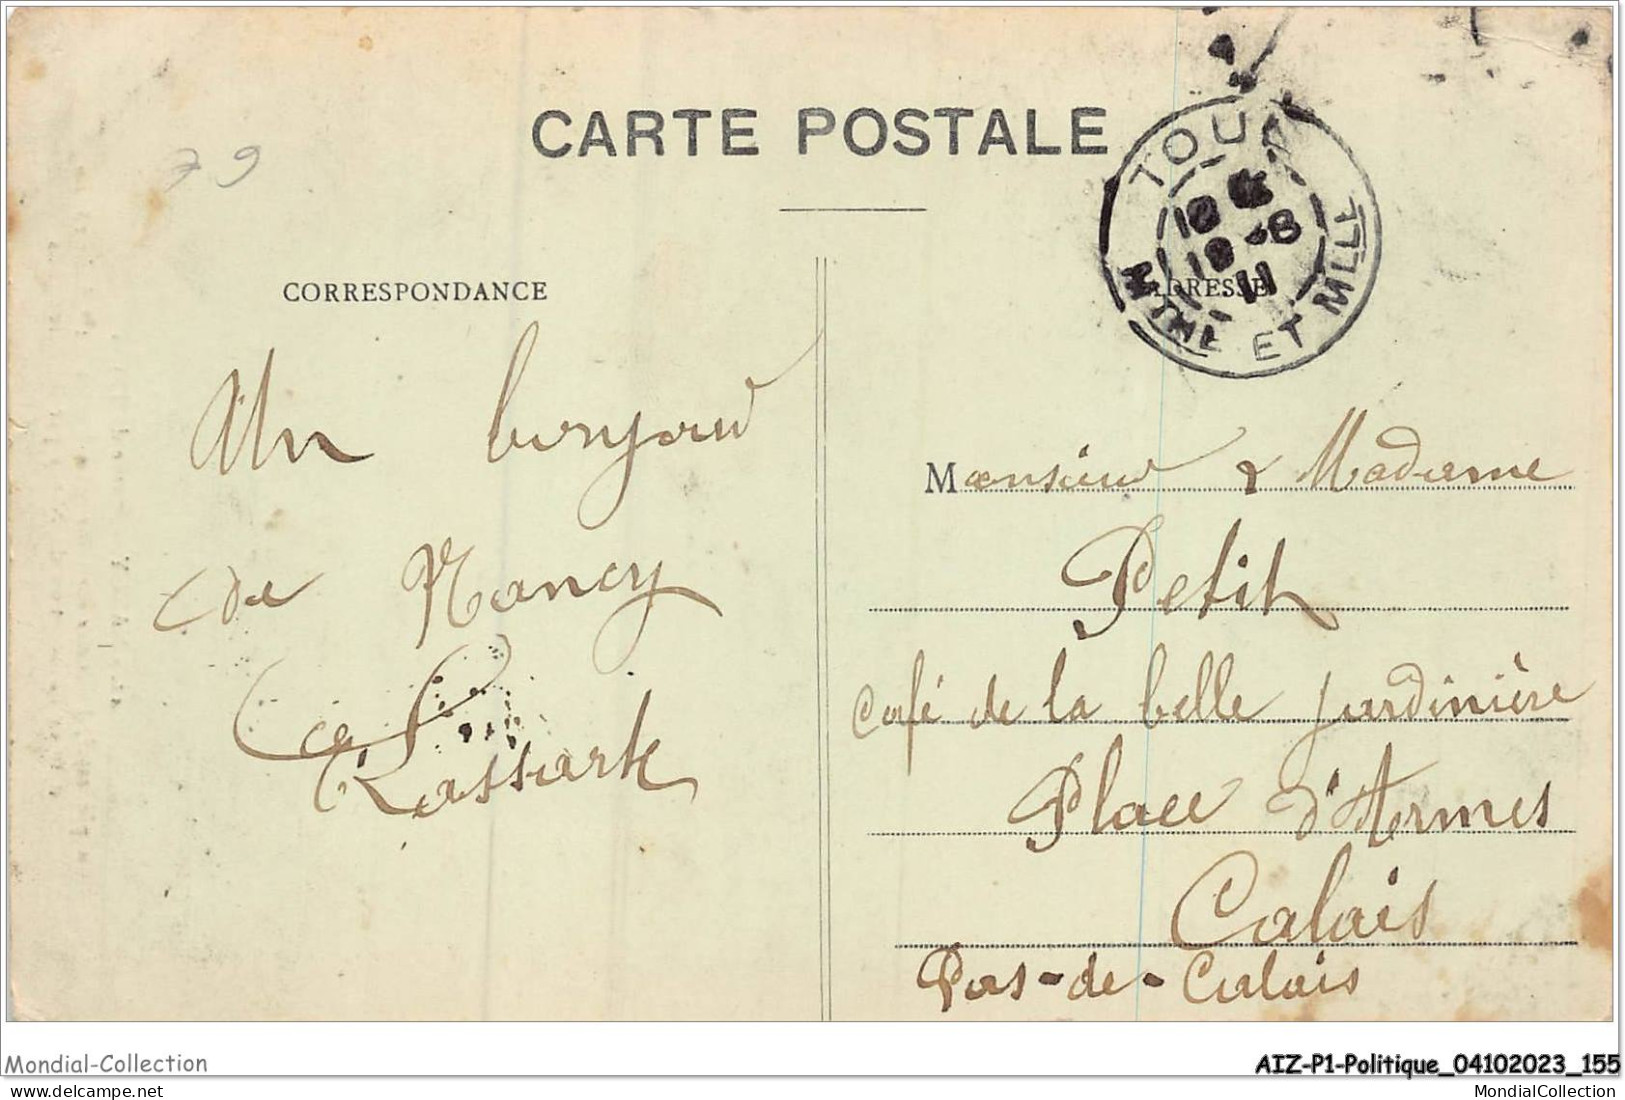 79
CARTE POSTALE
TOUL
10
19 -8
11
MTHE ET MLLE
CORRESPONDANCE
ADRESSE
Un bonjour
de Nancy
Monsieur & Madame
Petit
Café de la belle jardinière
Place d'Armes
Calais
Pas-de-Calais
Mondial-Collection
AIZ-P1-Politique_04102023_155
MondialCollection